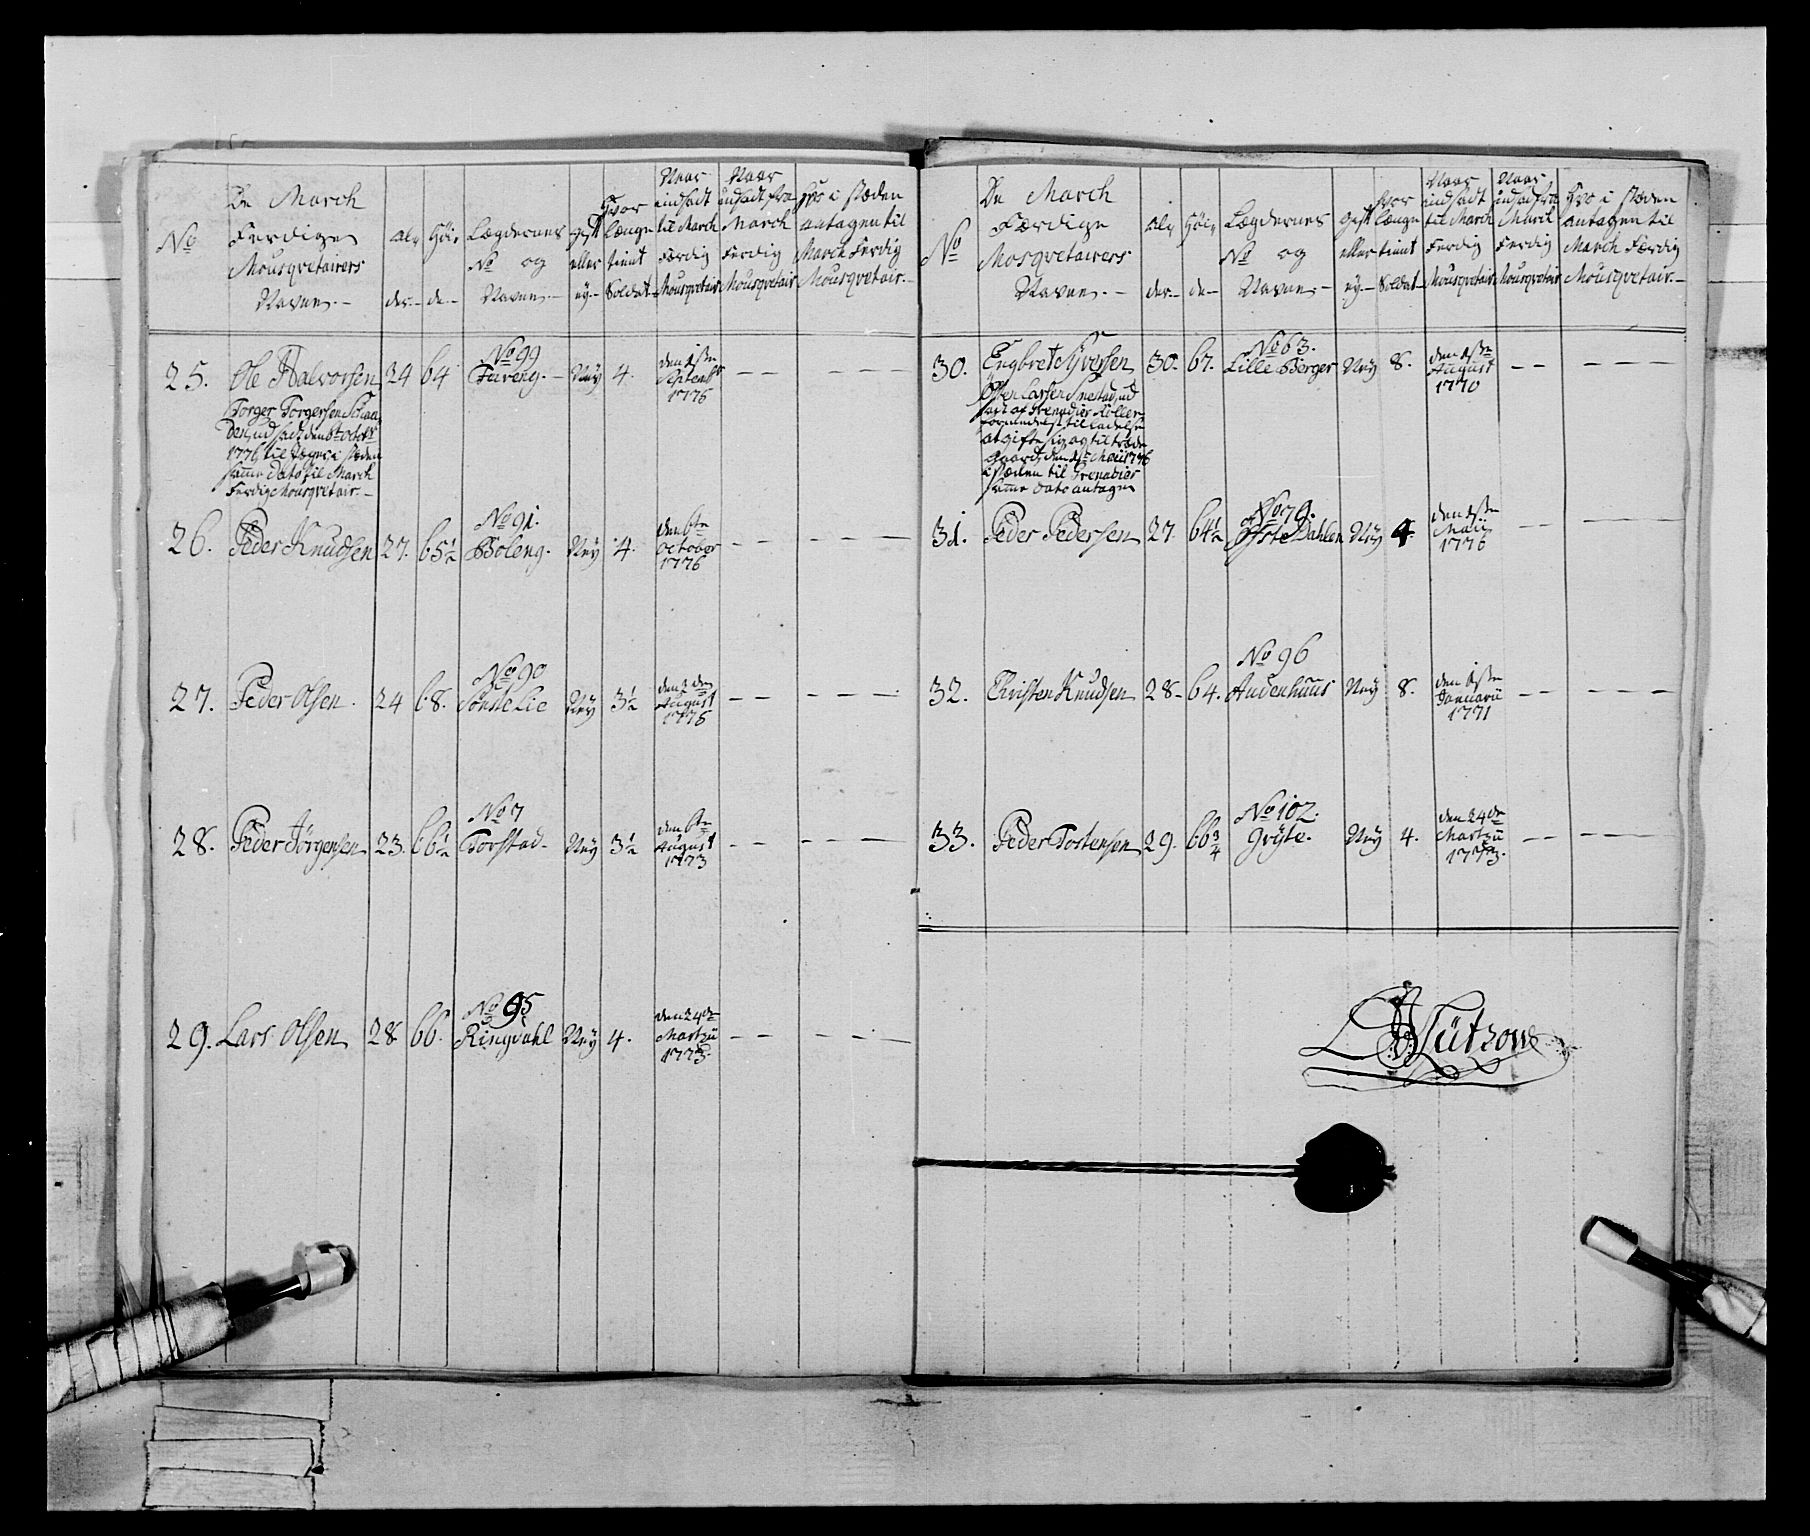 No
De March
Ferdige
Mousqvetairers
Navne.
Al-
der
Höi-
de
Lægdernes
No og
Navne.
gift
eller
ey
Hvor
længe
tient
Soldat
Naar
indsadt
til March
Færdig
Mousqvetair
Naar
udsadt fra
March
Ferdig
Mousqvetair
Hvo i stæden
antagen til
March Ferdig
Mousqvetair.
25. Ole Halvorsen 24 64 No 99 Fureng. Ney 4. den 1ste
1776
Torger Torgersen
den, udsadt den 6te octobr
1776 til i stæden
samme dato til March
Ferdig Mousqvetair.
26. Peder Knudsen 27. 65½ No 91. Boleng. Ney 4. den 6te
October
1776
27. Peder Olsen. 24 68. No 90 Ney 3½
August
1775
28. Peder Jörgensen 23. 66½ No 7 Torstad. Ney 3½ den 6te
August
1773
29. Lars Olsen 28 66. No 95 Ringdahl Ney 4. den 24de
Martzii
1773.
No
De March
Færdige
Mosqvetairers
Navne.
Al-
der
Höi-
de
Lægdernes
No og
Navne
gift
eller
ey
Hvor
længe
tient
Soldat
Naar
indsadt
til March
Ferdig
Mousqvetair
Naar
udsadt fra
March
Ferdig
Mousqvetair
Hvo i stæden
antagen til
March Færdig
Mousqvetair.
30. Engbret Syversen 30. 67. No 63. Lille Berger Ney 8. den 1ste
August
1770
Larsen Snestad, ud
sadt af Grenadier
formedelst tilladelse
at gifte sig og tiltræde
gaard, den 1ste Maii 1776
i stæden til Grenadier
samme dato antagen
31. Peder Pedersen 27. 64½ No 79. Ney 4. den 1ste
Maii
1776
32. Christen Knudsen 28. 64. No 96 Audenhuus Ney 8. den 1ste
Januarii
1771
33. Peder Tostensen 29. 66¾ No 102. Gryte. Ney 4. den 24de
Martzii
1773.
Lützow